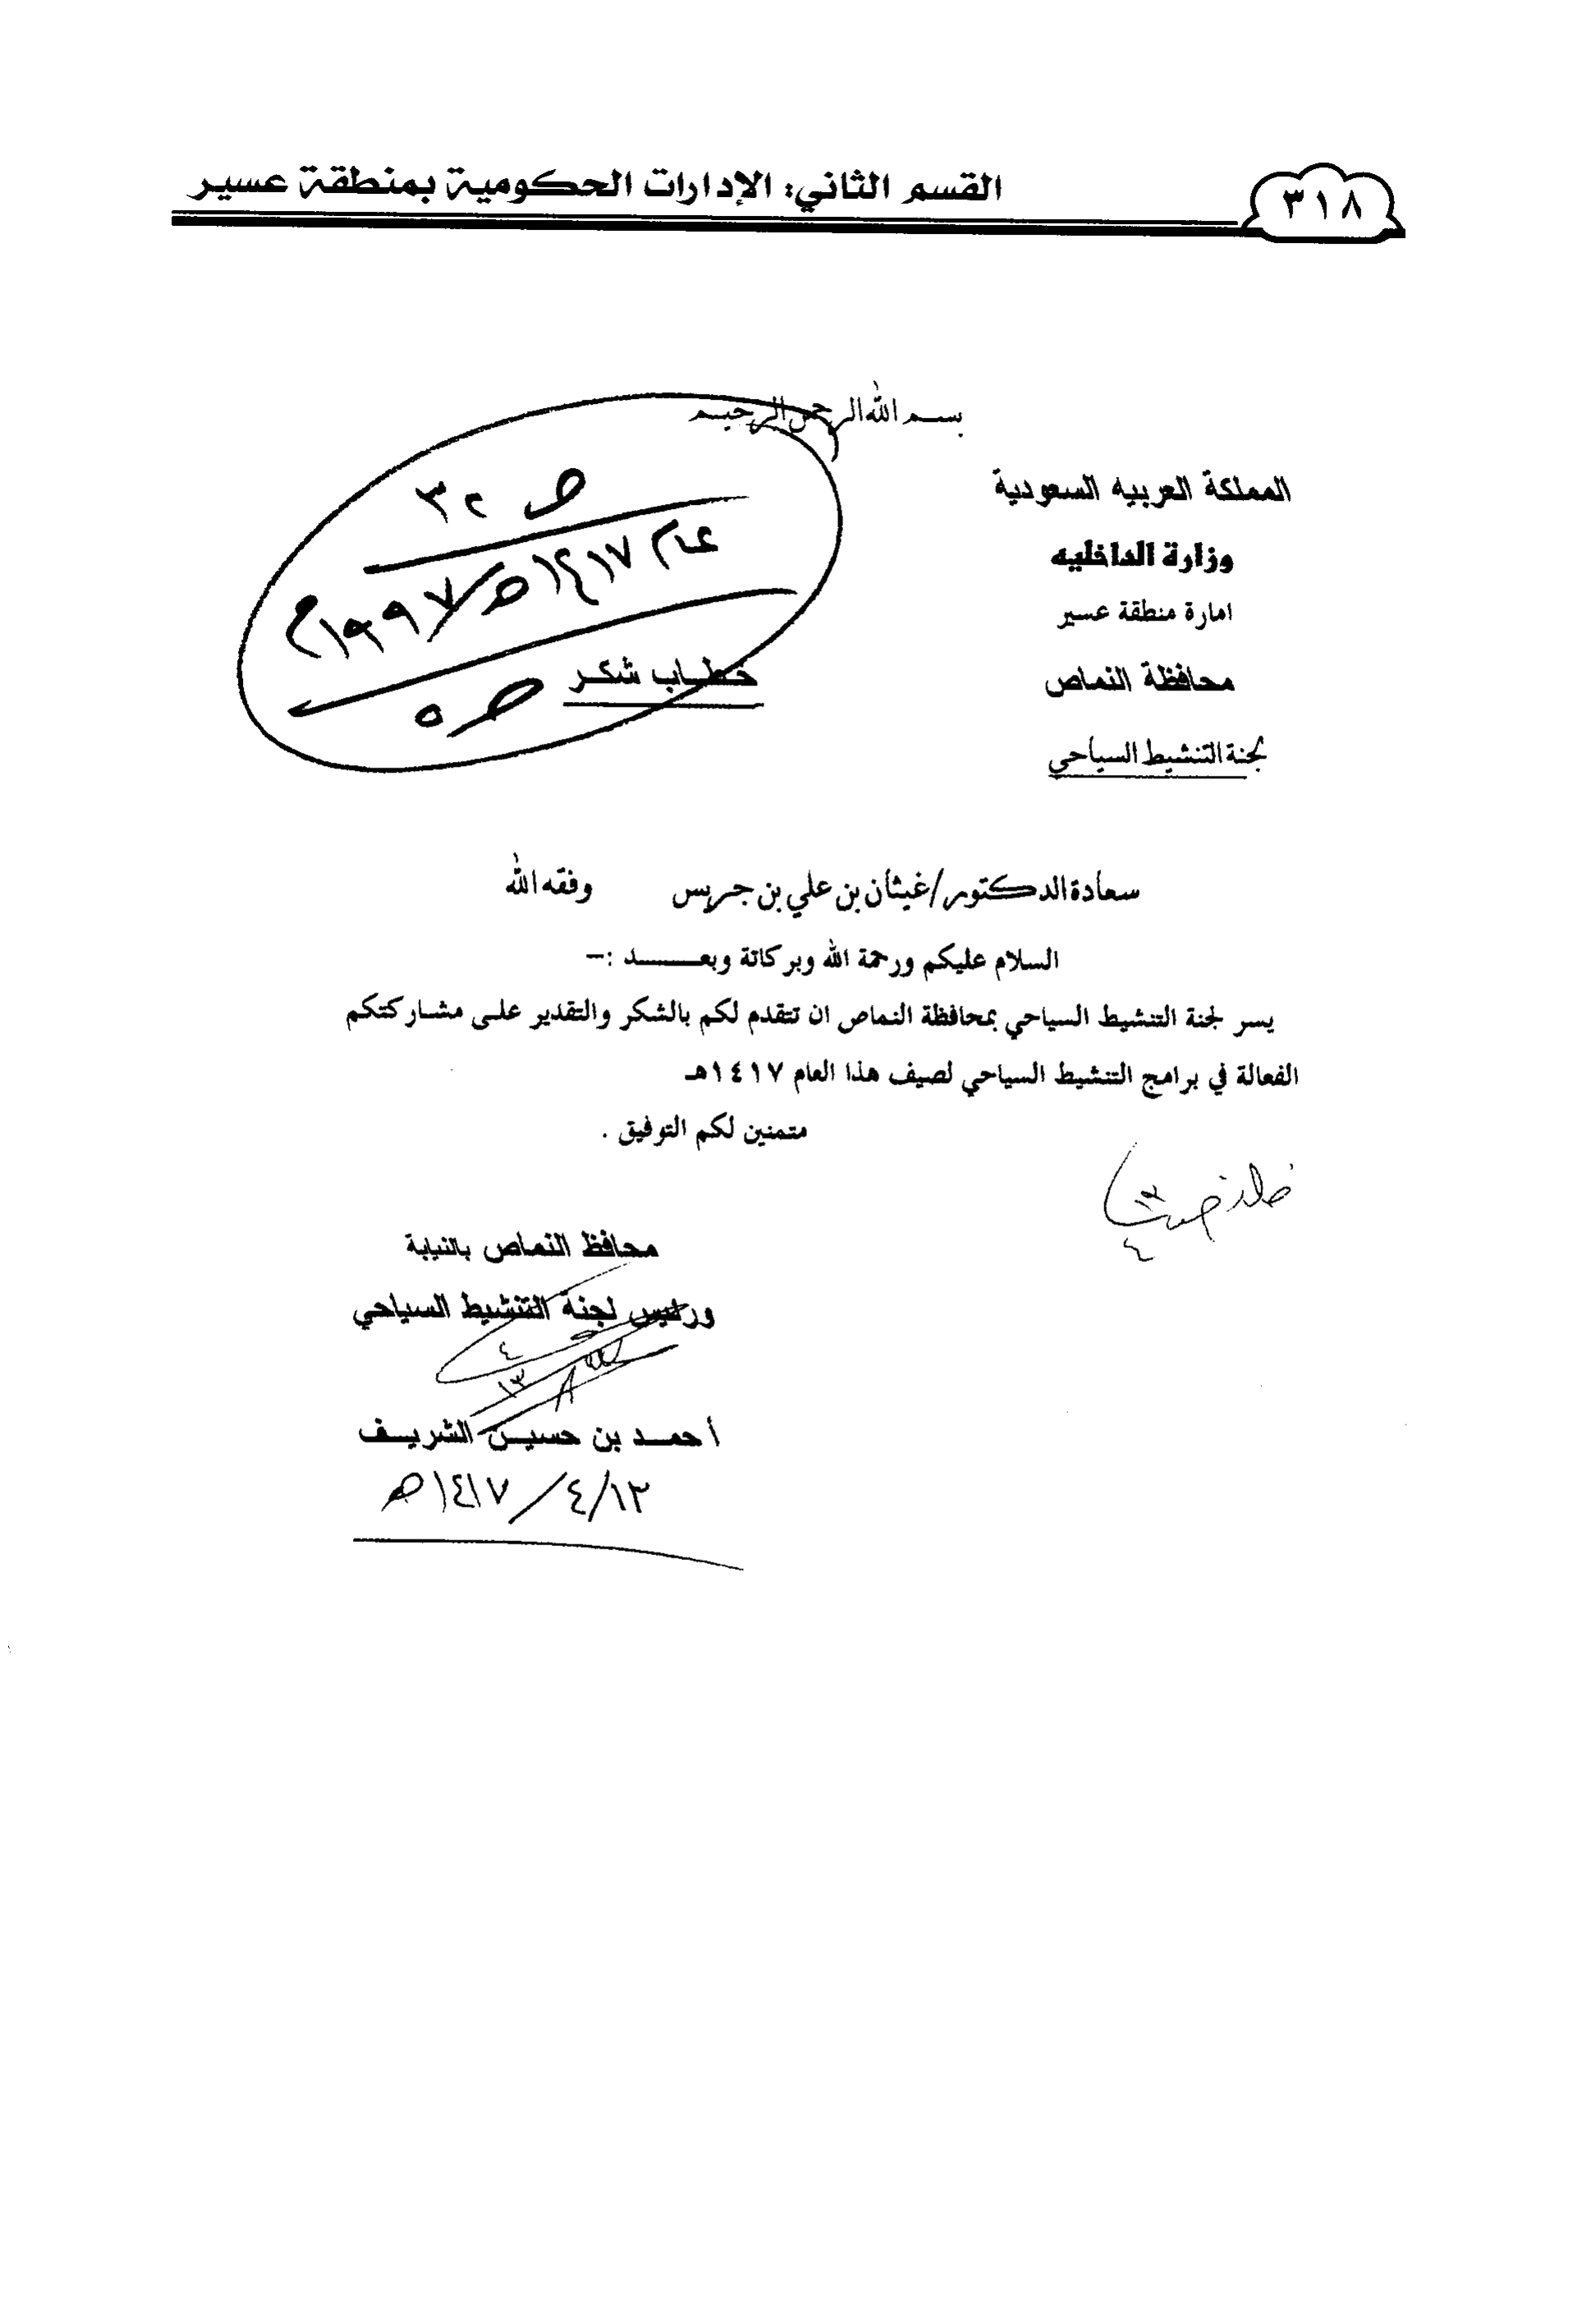 القسم الثاني: الإدارات الحكومية بمنطقة عسير
٣١٨
بسم الله الرحمن الرحيم
المملكة العربيه السعودية
وزارة الداخليه
امارة منطقة عسير
محافظة النماص
لجنة التنشيط السياحي
ص ٣٢
عام ١٤١٧هـ/١٩٩٧م
ص ٥
خطاب شكر
سعادة الدكتور/غيثان بن علي بن جريس وفقه الله
السلام عليكم ورحمة الله وبركاتة وبعـــــد :–
يسر لجنة التنشيط السياحي بمحافظة النماص ان تتقدم لكم بالشكر والتقدير على مشاركتكم
الفعالة في برامج التنشيط السياحي لصيف هذا العام ١٤١٧هـ
متمنين لكم التوفيق .
محافظ النماص بالنيابة
ورئيس لجنة التنشيط السياحي
أحمد بن حسين الشريف
١٤١٧/٤/١٣هـ